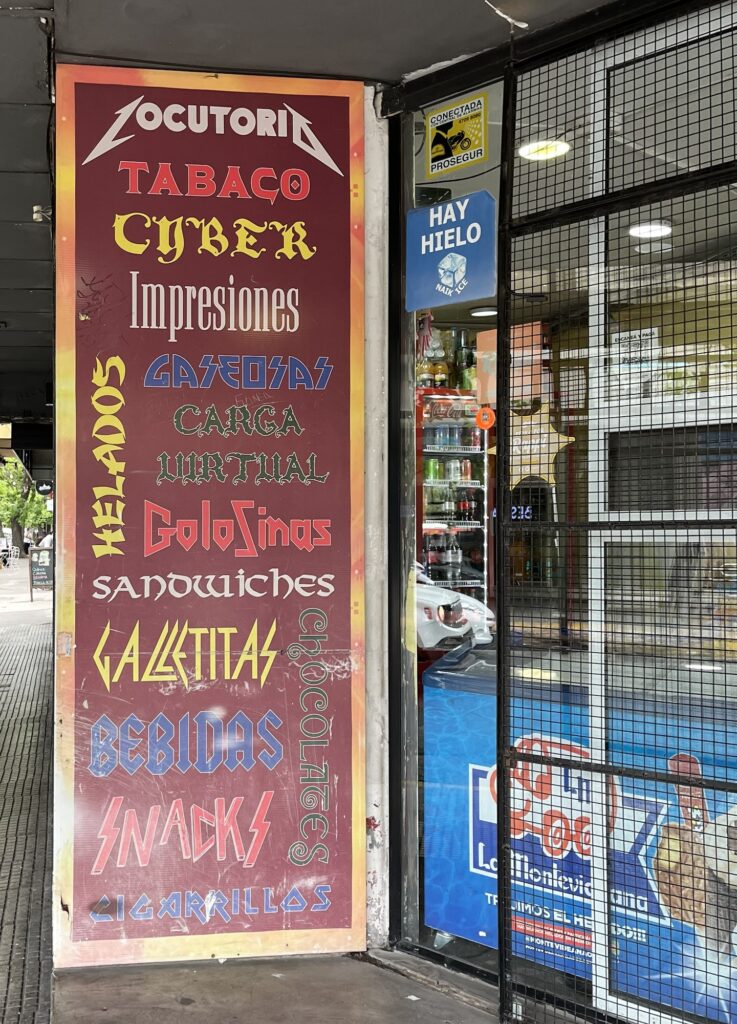 LOCUTORIO
TABACO
CYBER
Impresiones
GASEOSAS
HELADOS
CARGA
VIRTUAL
GoloSinas
SANDWICHES
GALLETITAS
CHOCOLATES
BEBIDAS
SNACKS
CIGARRILLOS
CONECTADA
PROSEGUR
HAY
HIELO
NAIK ICE
La Montevideana